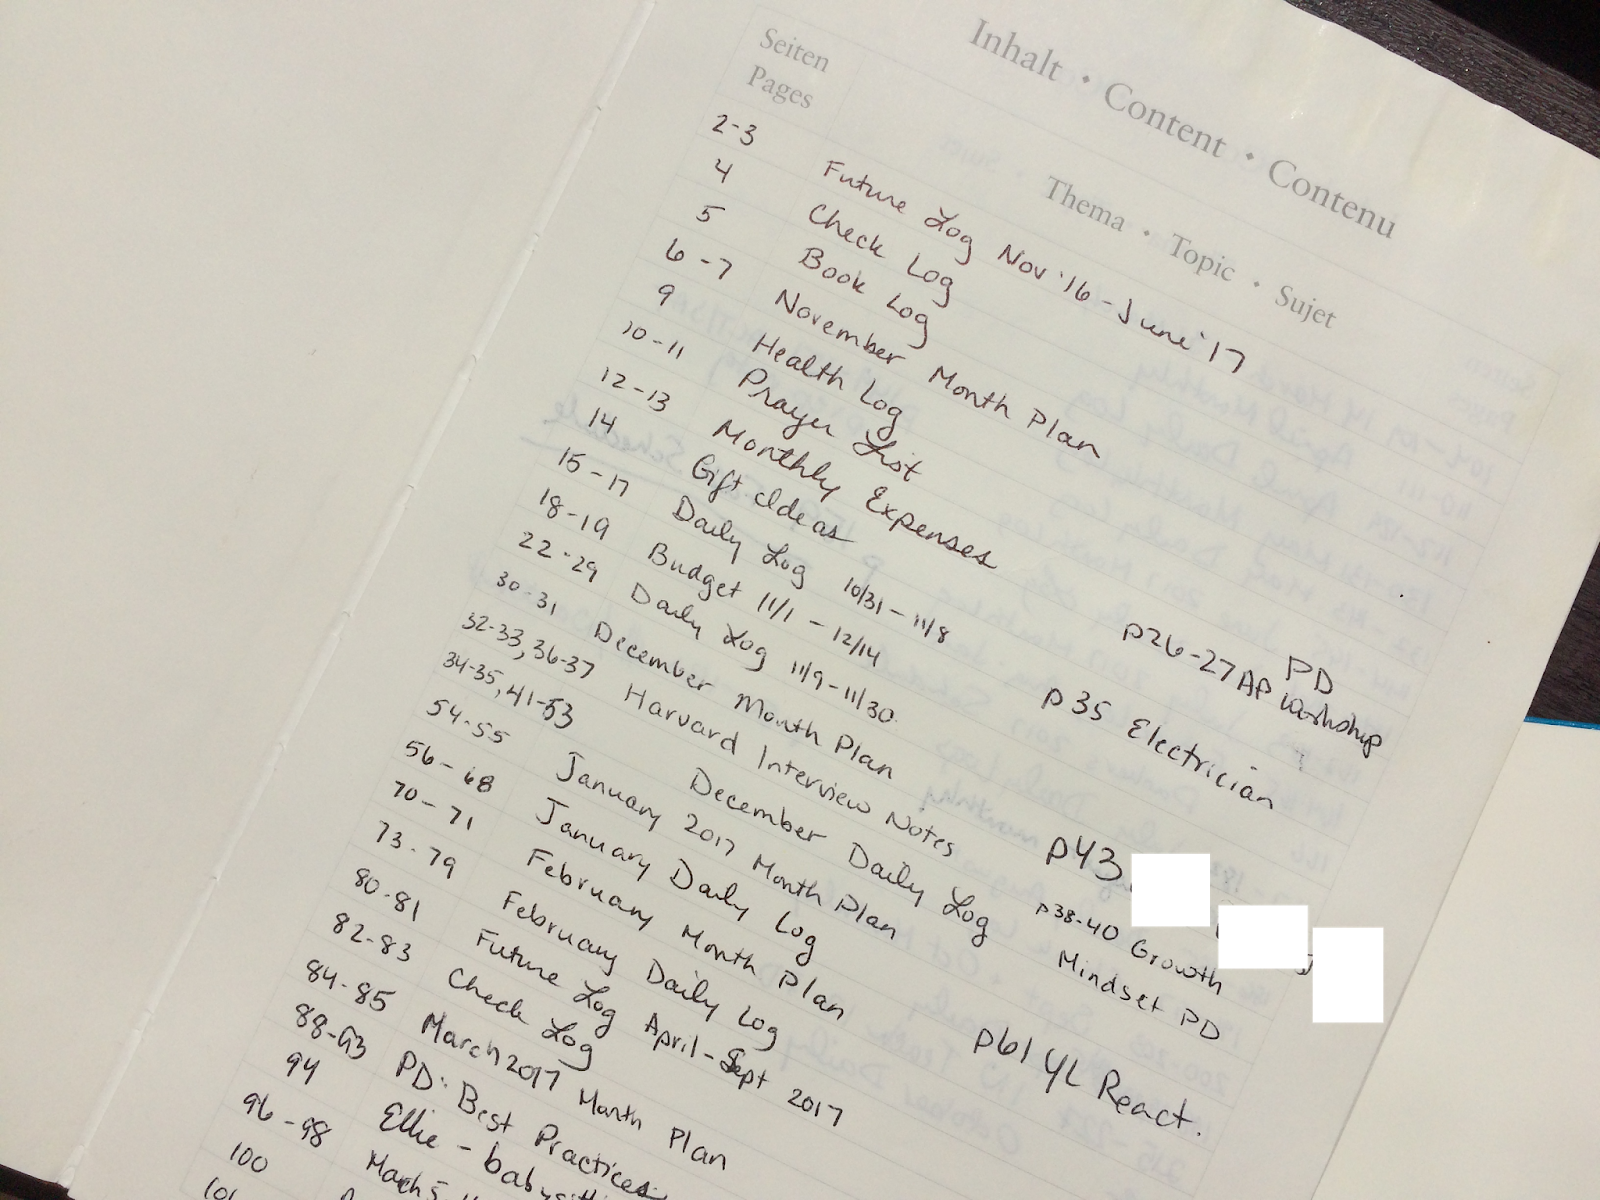 Inhalt • Content • Contenu
Seiten
Pages
Thema • Topic • Sujet
2-3 Future Log Nov '16 - June '17
4 Check Log
5 Book Log
6-7 November Month Plan
9 Health Log
10-11 Prayer List
12-13 Monthly Expenses
14 Gift Ideas
15-17 Daily Log 10/31 - 11/8
18-19 Budget 11/1 - 12/14
22-29 Daily Log 11/9 - 11/30
30-31 December Month Plan
32-33, 36-37 Harvard Interview Notes
34-35, 41-53 December Daily Log
54-55 January 2017 Month Plan
56-68 January Daily Log
70-71 February Month Plan
73-79 February Daily Log
80-81 Future Log April - Sept 2017
82-83 Check Log
84-85 March 2017 Month Plan
88-93 PD: Best Practices
94 Ellie -
96-98
100
101
p26-27 AP PD
Workshop
p35 Electrician
p43
p38-40 Growth
Mindset PD
p61 YL React.